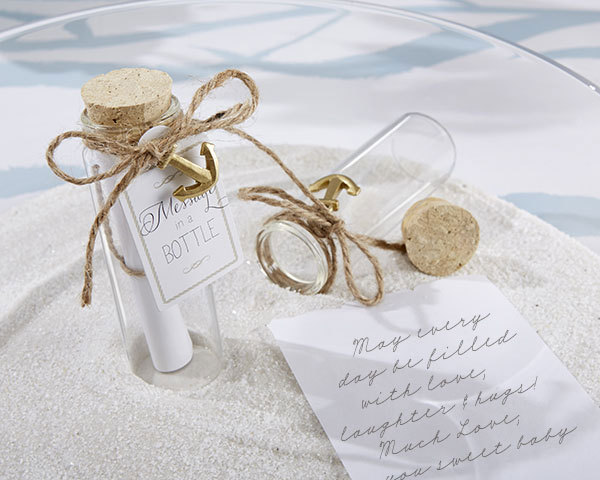 Message
in a
BOTTLE
May every
day be filled
with love,
laughter & hugs!
Much Love,
you sweet baby